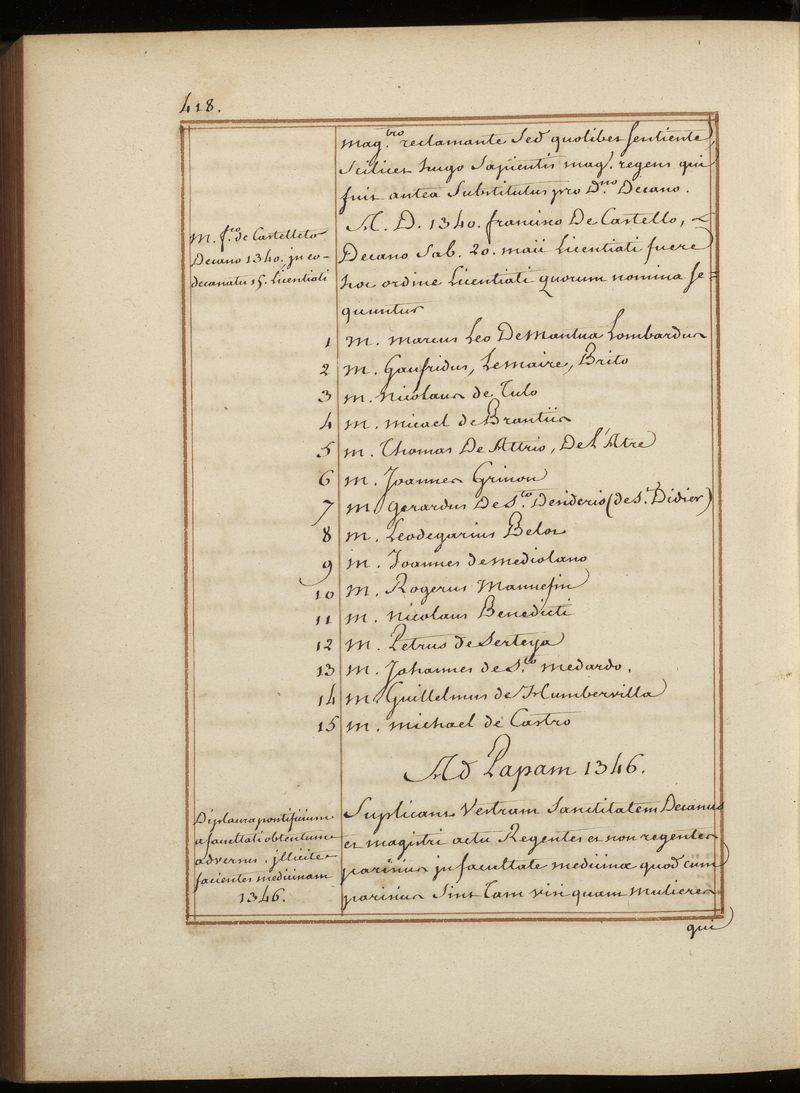 418.
mag.bro reclamante sed quolibet sentiente,
Scilicet hugo Sapientis mag.r regens qui
fuit antea Substitutus pro D.no Decano.
M. f.co de Castelleto
Decano 1340. in eo-
decanatu 15. Licentiati
A. D. 1340. francisco De Castello,
Decano Sab. 20. maii Licentiati fuere
hoc ordine Licentiati quorum nomina se=
quuntur
1 M. marcus Leo De Mantua Lombardus
2 M. Gaufridus, Lemaire, Brito
3 M. Nicolaus de Tulo
4 M. micael de Brantiis
5 M. Thomas De Attrio, De l'Atre
6 M. Joannes Grinon
7 M. Gerardus De S.to Desiderio (de S.t Didier)
8 M. Leodegarius Belot
9 M. Joannes de mediolano
10 M. Rogerus Mannesin
11 M. nicolaus Benedicti
12 M. Petrus de Serteya
13 M. Johannes de S.to medardo.
14 M. Guillelmus de Humbervilla
15 M. michael de Castro
Ad Papam 1346.
Diplaura pontificium
a facultati obtentum
adversus illicite
facientes medicinam
1346.
Suplicant Vestram Sanctitatem Decanus
et magistri actu Regentes et non regentes
parisius in facultate medicinæ quod cum
parisius Sint Tam viri quam mulieres
qui